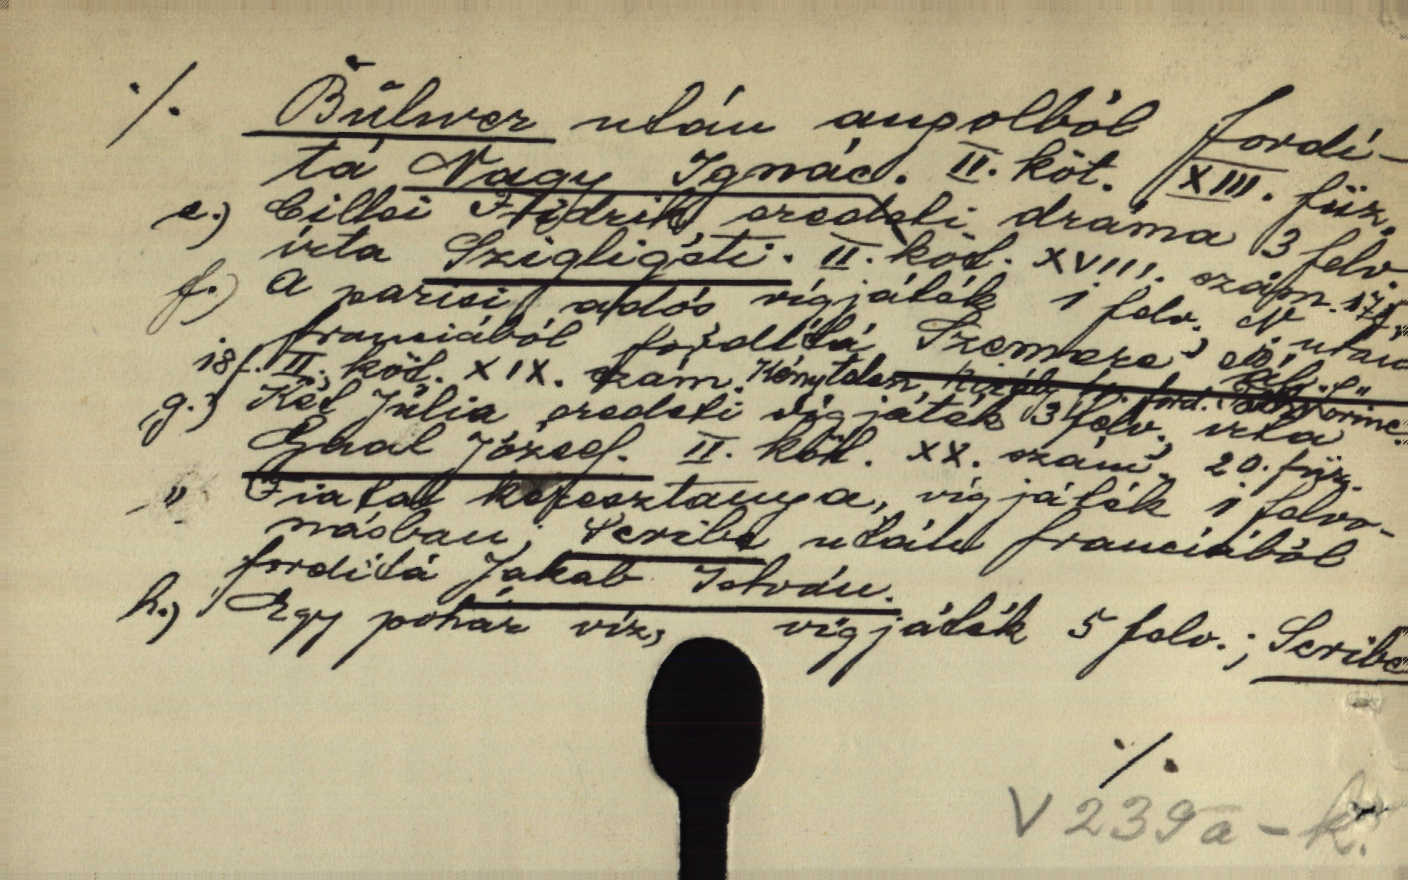 ./. Bŭlwer után angolból fordí-
tá Nagy Ignác. II. köt. XIII. füz.
e.) Cillei Fridrik eredeti dráma 3 felv.
írta Szigligeti. II. köt. XVIII. szám.
f.) A párisi adós vígjáték 1 felv.; N után
franciából fordítá Szemere,
18 f. II. köt. XIX. szám. Kénytelen
g.) Két Júlia eredeti vígjáték 3 felv., írta
Gaal József. II. köt. XX. szám, 20. füz.
" Fiatal keresztanya, vígjáték 1 felvo-
násban, Scribe után franciából
fordítá Jakab István.
h.) Egy pohár víz, vígjáték 5 felv.; Scribe
./.
V 239a-k.